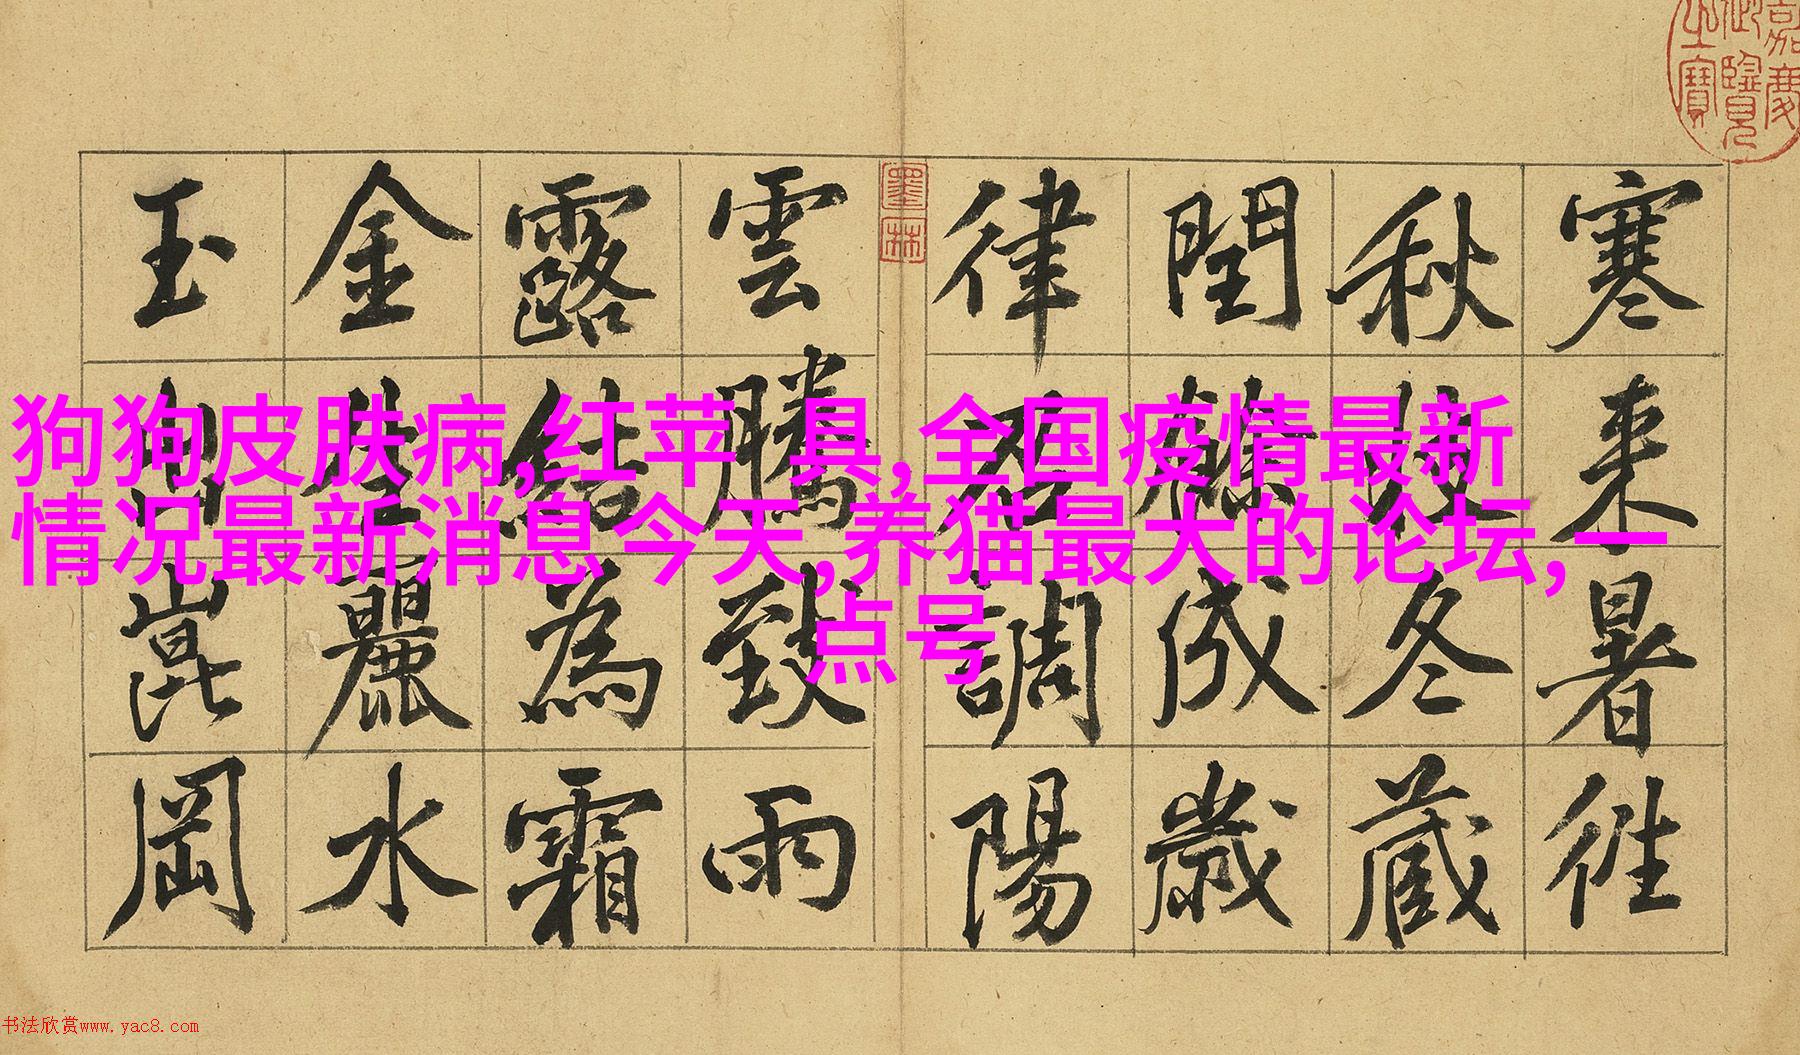 狗狗皮肤病,红苹 具,全国疫情最新
情况最新消息今天,养猫最大的论坛,一
点号
寒来暑徃
秋收冬藏
閏餘成歲
律呂調陽
雲騰致雨
露結為霜
金生麗水
玉出崑岡
嘉慶御覽之寶
墨林
书法欣赏www.yac8.com